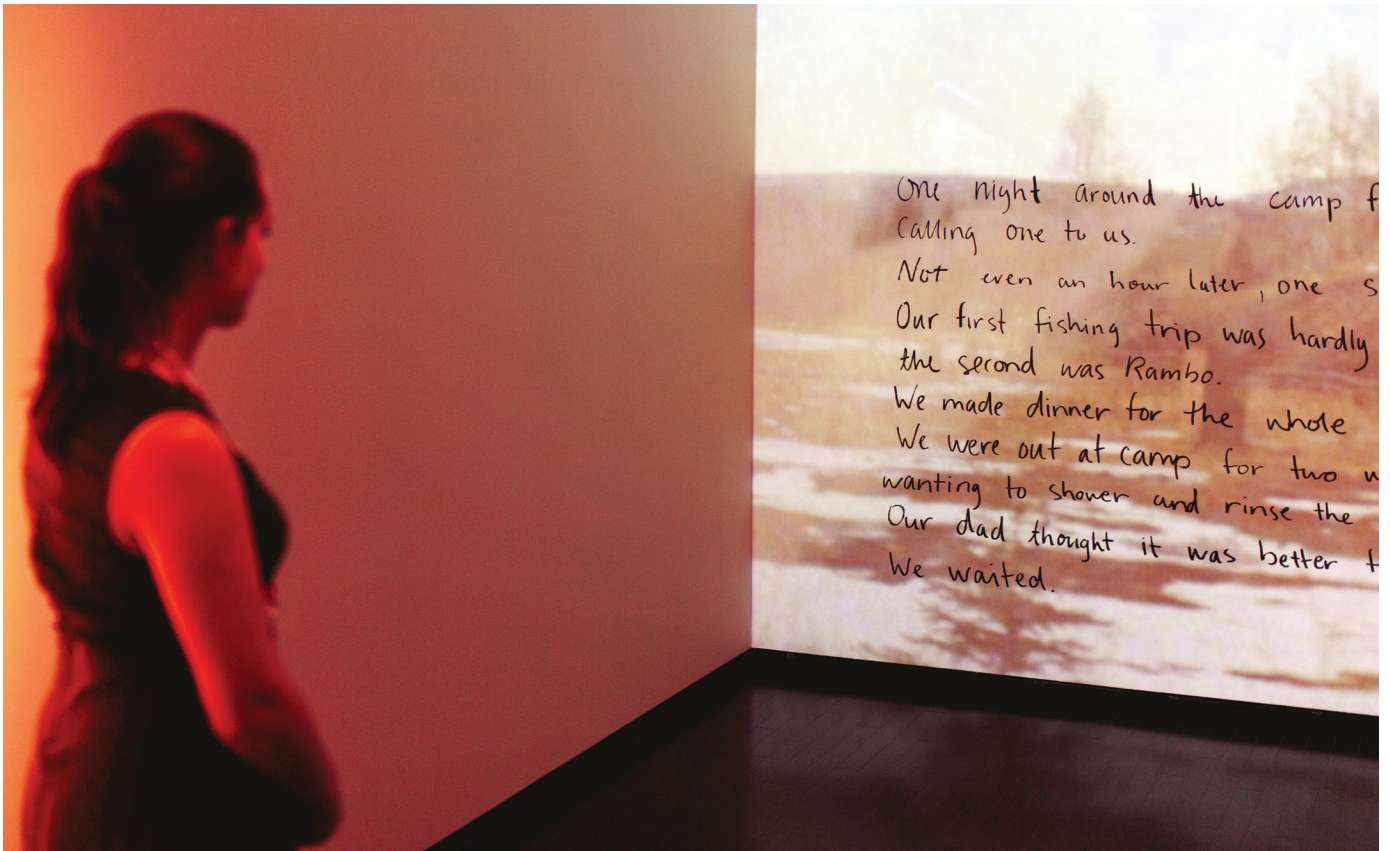 One night around the camp f
Calling one to us.
Not even an hour later, one s
Our first fishing trip was hardly
the second was Rambo.
We made dinner for the whole
We were out at camp for two w
wanting to shower and rinse the
Our dad thought it was better t
We waited.